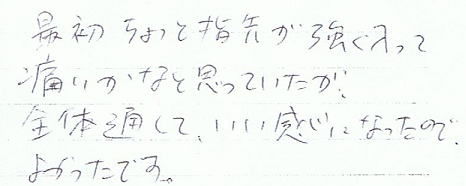 最初ちょっと指先が強く入って
痛いかなと思っていたが、
全体通して、いい感じになったので、
よかったです。